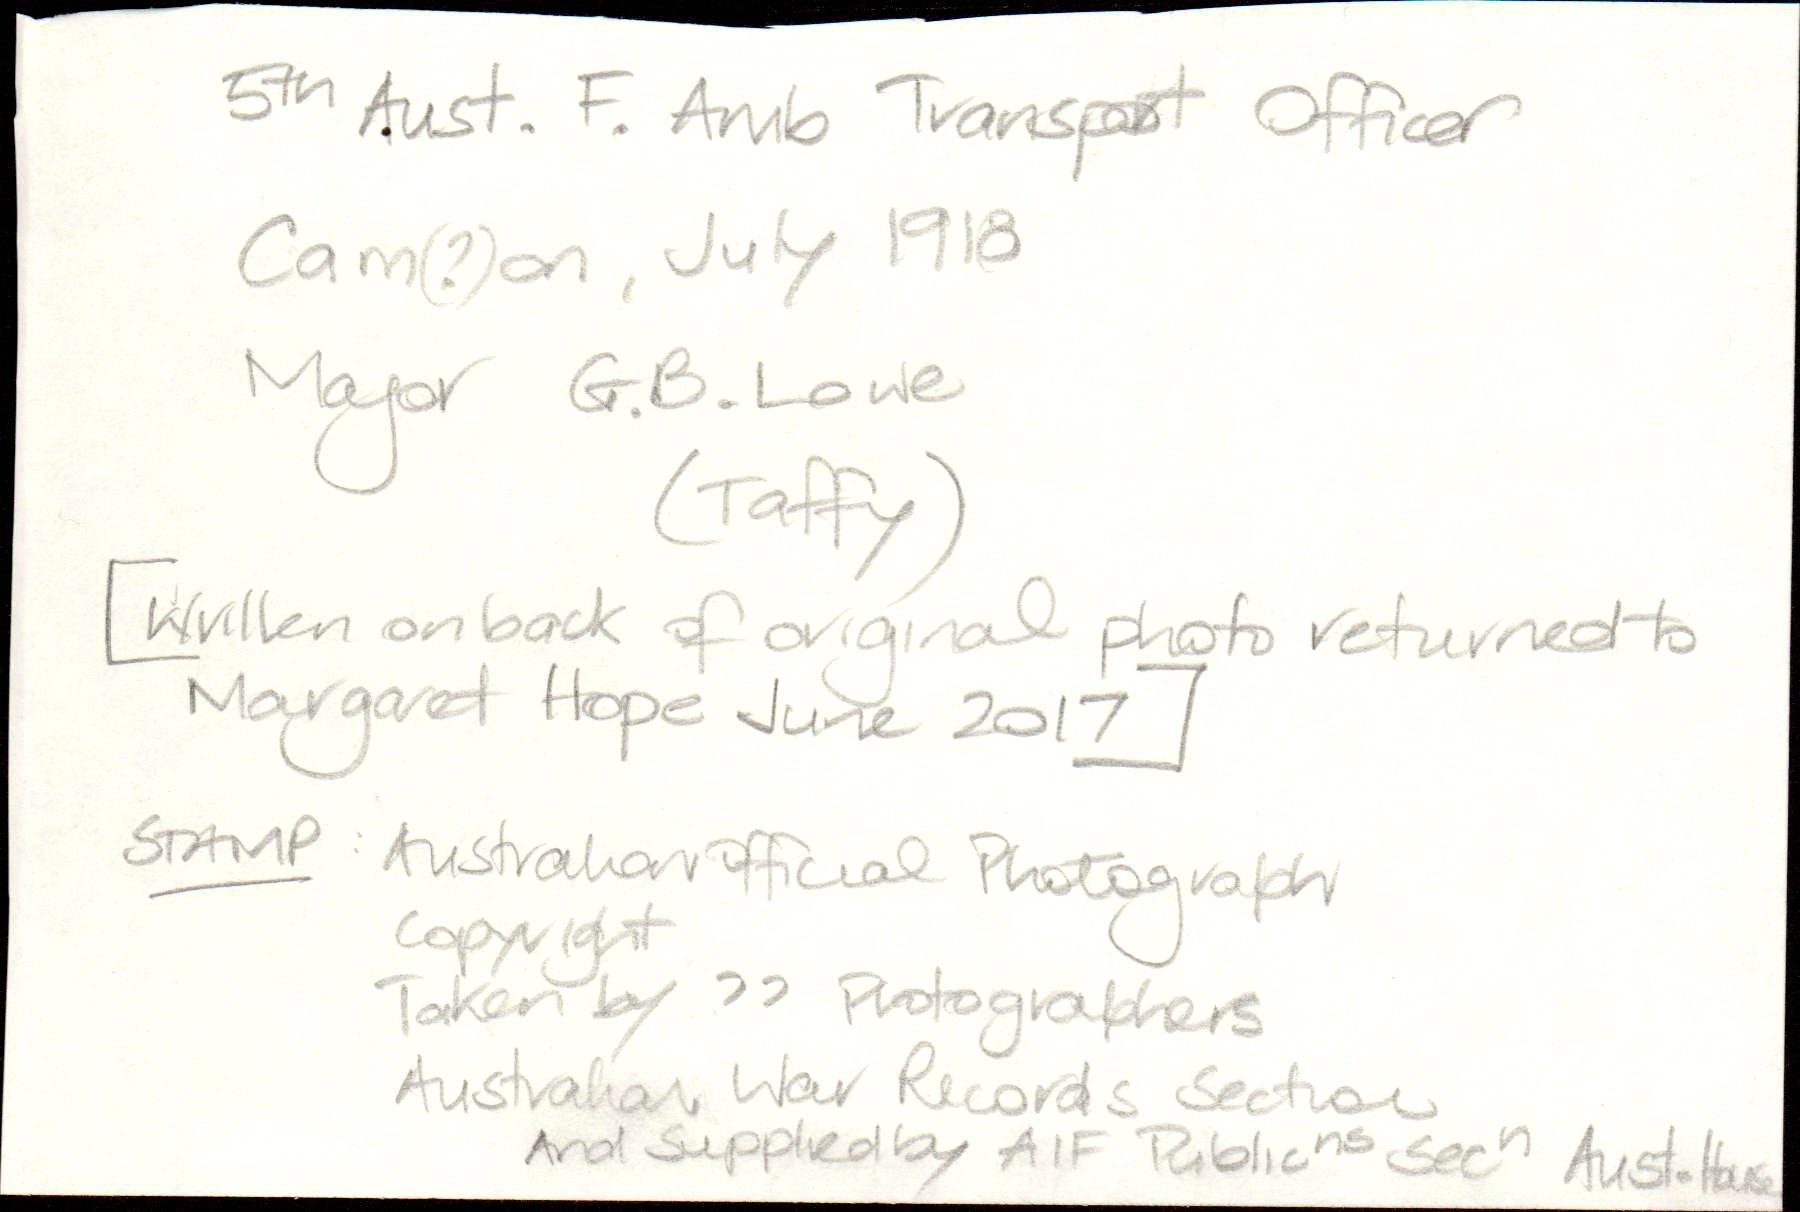 5th Aust. F. Amb Transport Officer
Cam(?)on, July 1918
Major G.B. Lowe
(Taffy)
[Written on back of original photo returned to
Margaret Hope June 2017]
STAMP: Australian Official Photograph
Copyright
Taken by ?? Photographers
Australian War Records Section
And Supplied by AIF Publicns Secn Aust. House